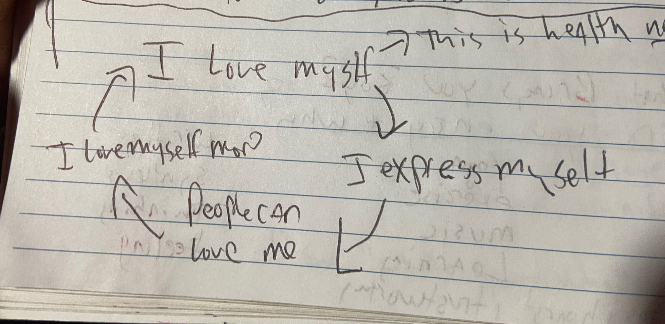 I Love myslf
This is health
I love myself more
I express myself
People can
Love me